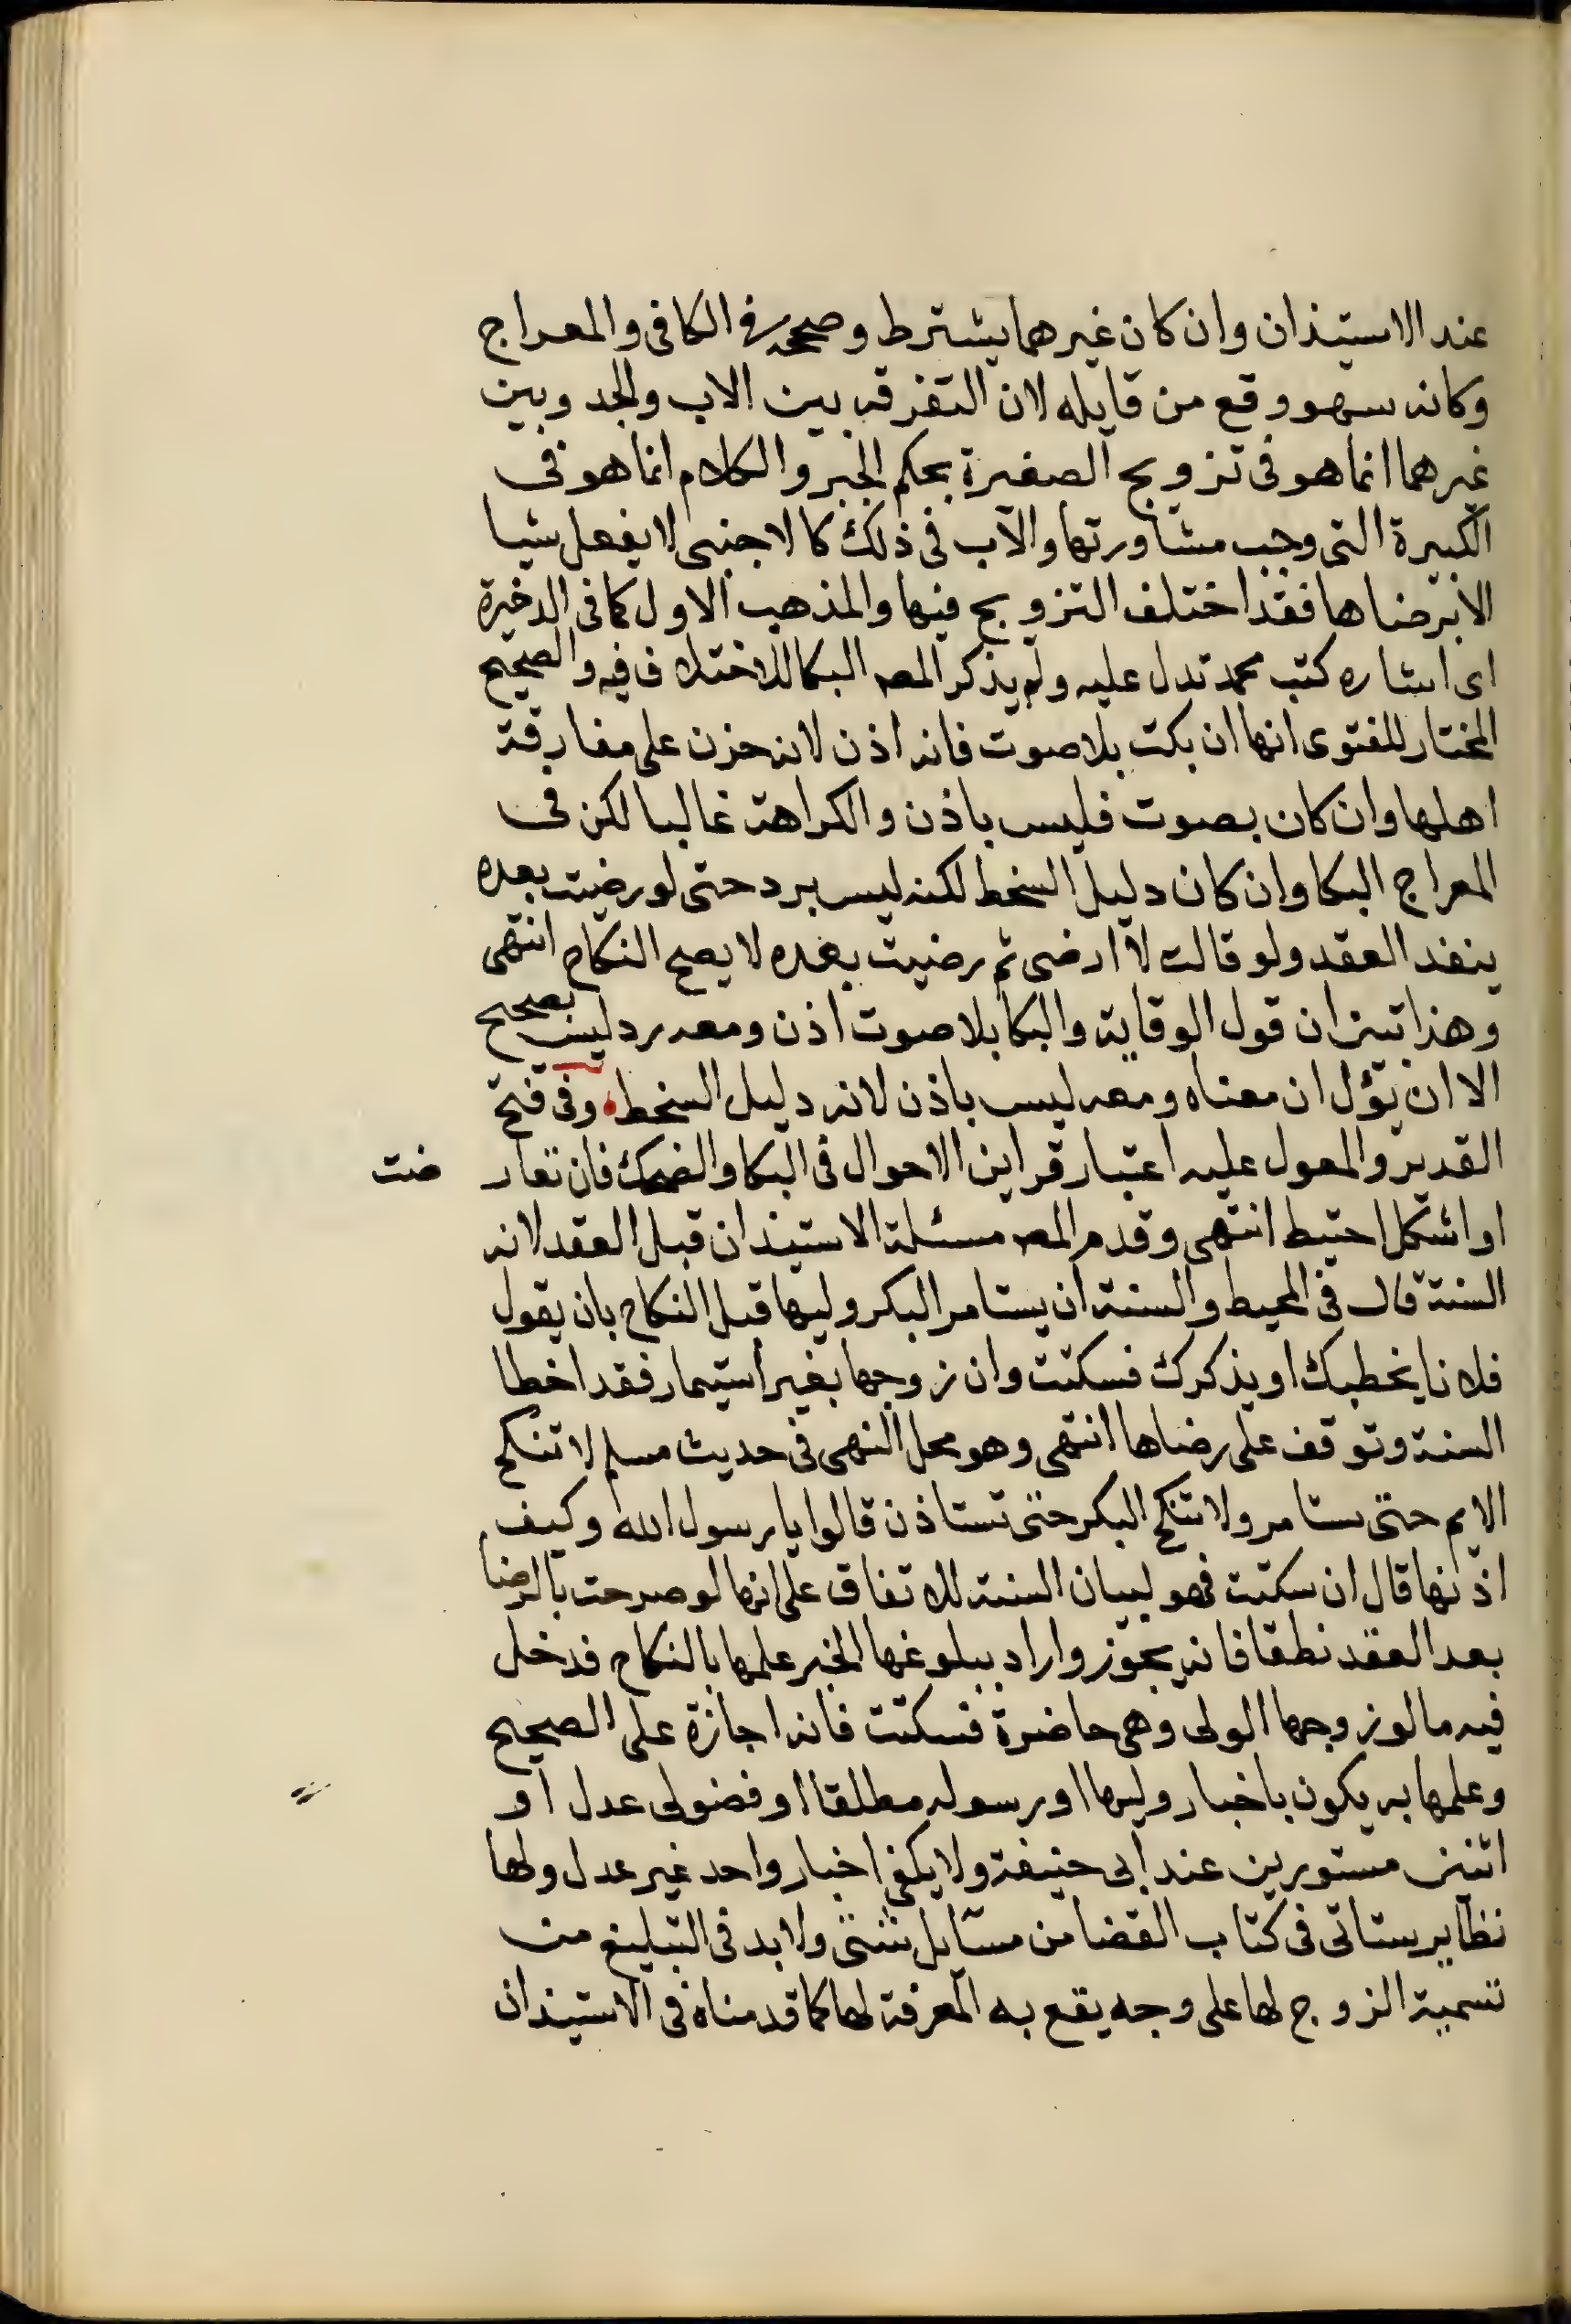 عند الاستيذان وان كان غيرهما يشترط وصححه في الكافي والمعراج
وكانه سهو وقع من قايله لان التفرقه بين الاب والجد وبين
غيرهما انما هو في تزويج الصغيرة بحكم الجبر والكلام انما هو في
الكبيرة التي وجب مشاورتها والاب في ذلك كالاجنبي لا يفعل شيا
الا برضاها فقد اختلف الترويج فيها والمذهب الاول كما في الدخيرة
اى اشاره كتب محمد تدل عليه ولم يذكر المصـ البكا للاختلاف فيه والصحيح
المختار للفتوى انها ان بكت بلا صوت فانه اذن لانه حزن على مفارقة
اهلها وان كان بصوت فليس باذن والكراهة غالبا لكن في
المعراج البكا وان كان دليل السخط لكنه ليس برد حتى لو رضيت بعده
ينفد العقد ولو قالت لا ارضى ثم رضيت بعده لا يصح النكاح انتهى
وهذا تبين ان قول الوقاية والبكا بلا صوت اذن ومعه رد ليس بصحيح
الا ان تؤل ان معناه ومعه ليس باذن لانه دليل السخط وفي فتح
القدير والمعول عليه اعتبار قراين الاحوال في البكا والضحك فان تعار ضت
او اشكل احتيط انتهى وقدم المصـ مسئلة الاستيذان قبل العقد لانه
السنة قال في المحيط والسنة ان يستامر البكر وليها قبل النكاح بان يقول
فلانا يخطبك او يذكرك فسكتت وان زوجها بغير استيمار فقد اخطا
السنة وتوقف على رضاها انتهى وهو محل النهى في حديث مسلم لا تنكح
الايم حتى ستامر ولا تنكح البكر حتى تستاذن قالوا يا رسول الله وكيف
اذنها قال ان سكتت فهو لبيان السنة للاتفاق على انها لو صرحت بالرضا
بعد العقد نطقا فانه يجوز واراد ببلوغها الخبر علمها بالنكاح فدخل
فيه ما لو زوجها الولى وهي حاضرة فسكتت فانه اجازة على الصحيح
وعلمها به يكون باخبار وليها او رسوله مطلقا او فضولى عدل او
اثنين مستورين عند ابى حنيفة ولا يكفى اخبار واحد غير عدل ولها
نظاير ستاتى في كتاب القضا من مسايل شتى ولا بد في التبليغ من
تسمية الزوج لها على وجه يقع به المعرفة لها كما قدمناه في الاستيذان